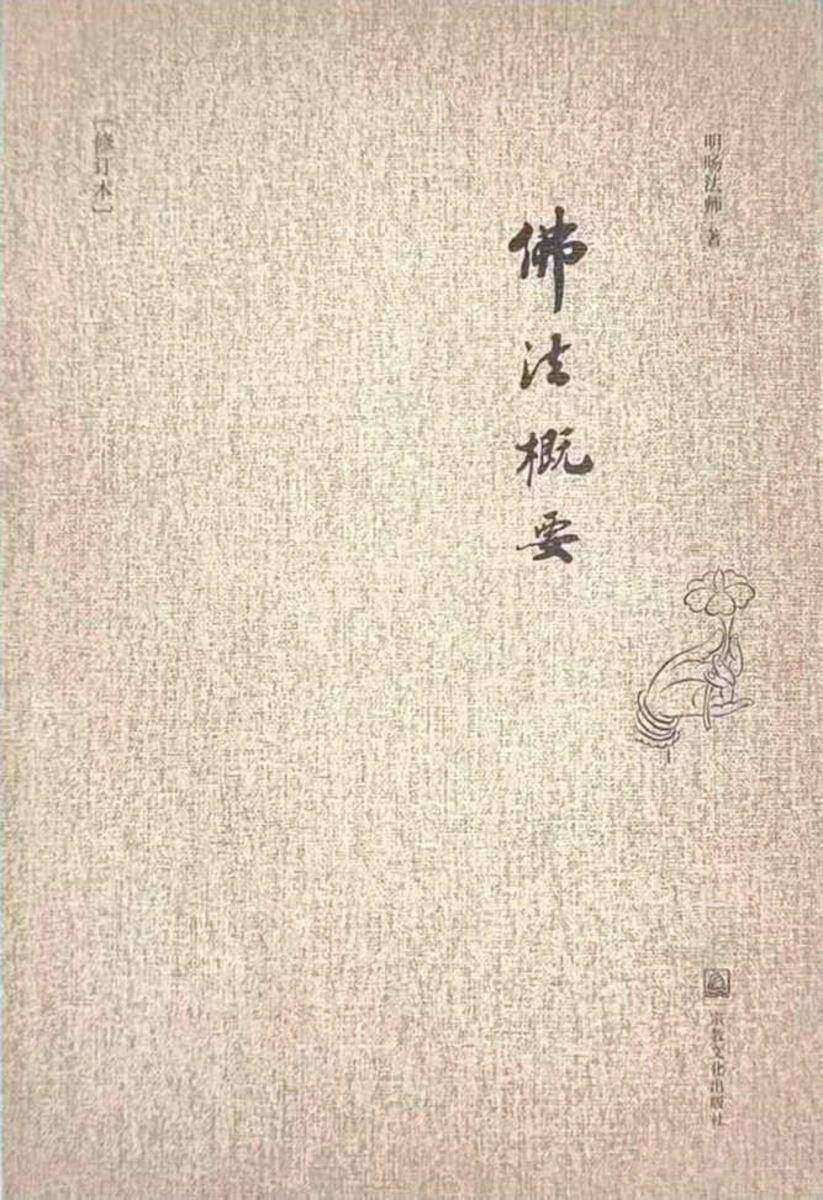 明旸法师 著
佛法概要
[修订本]
宗教文化出版社